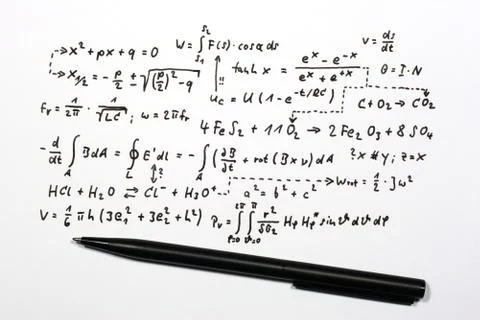 x² + px + q = 0    W = ∫_{S₁}^{S₂} F(s) · cos α ds    v = ds/dt
x_{1/2} = - p/2 ± √((p/2)² - q)    tanh x = (e^x - e^{-x})/(e^x + e^{+x})    Θ = I · N
u_C = U (1 - e^{-t/RC})    C + O₂ → CO₂
f_r = 1/(2π) · 1/√(LC) ; ω = 2πf_r    4 FeS₂ + 11 O₂ → 2 Fe₂O₃ + 8 SO₄
- d/dt ∫_A B dA = ∮_L E' dl = - ∫_A (∂B/∂t + rot (B × v) dA    ? x # y ; z = x
HCl + H₂O ⇌ Cl⁻ + H₃O⁺    a² = b² + c²    W_rot = 1/2 · J ω²
V = 1/6 π h (3 r₁² + 3 r₂² + h²)    P_v = ∫_{φ=0}^{2π} ∫_{ϑ=0}^{π} r²/ H_φ H_φ* sin ϑ dϑ dφ